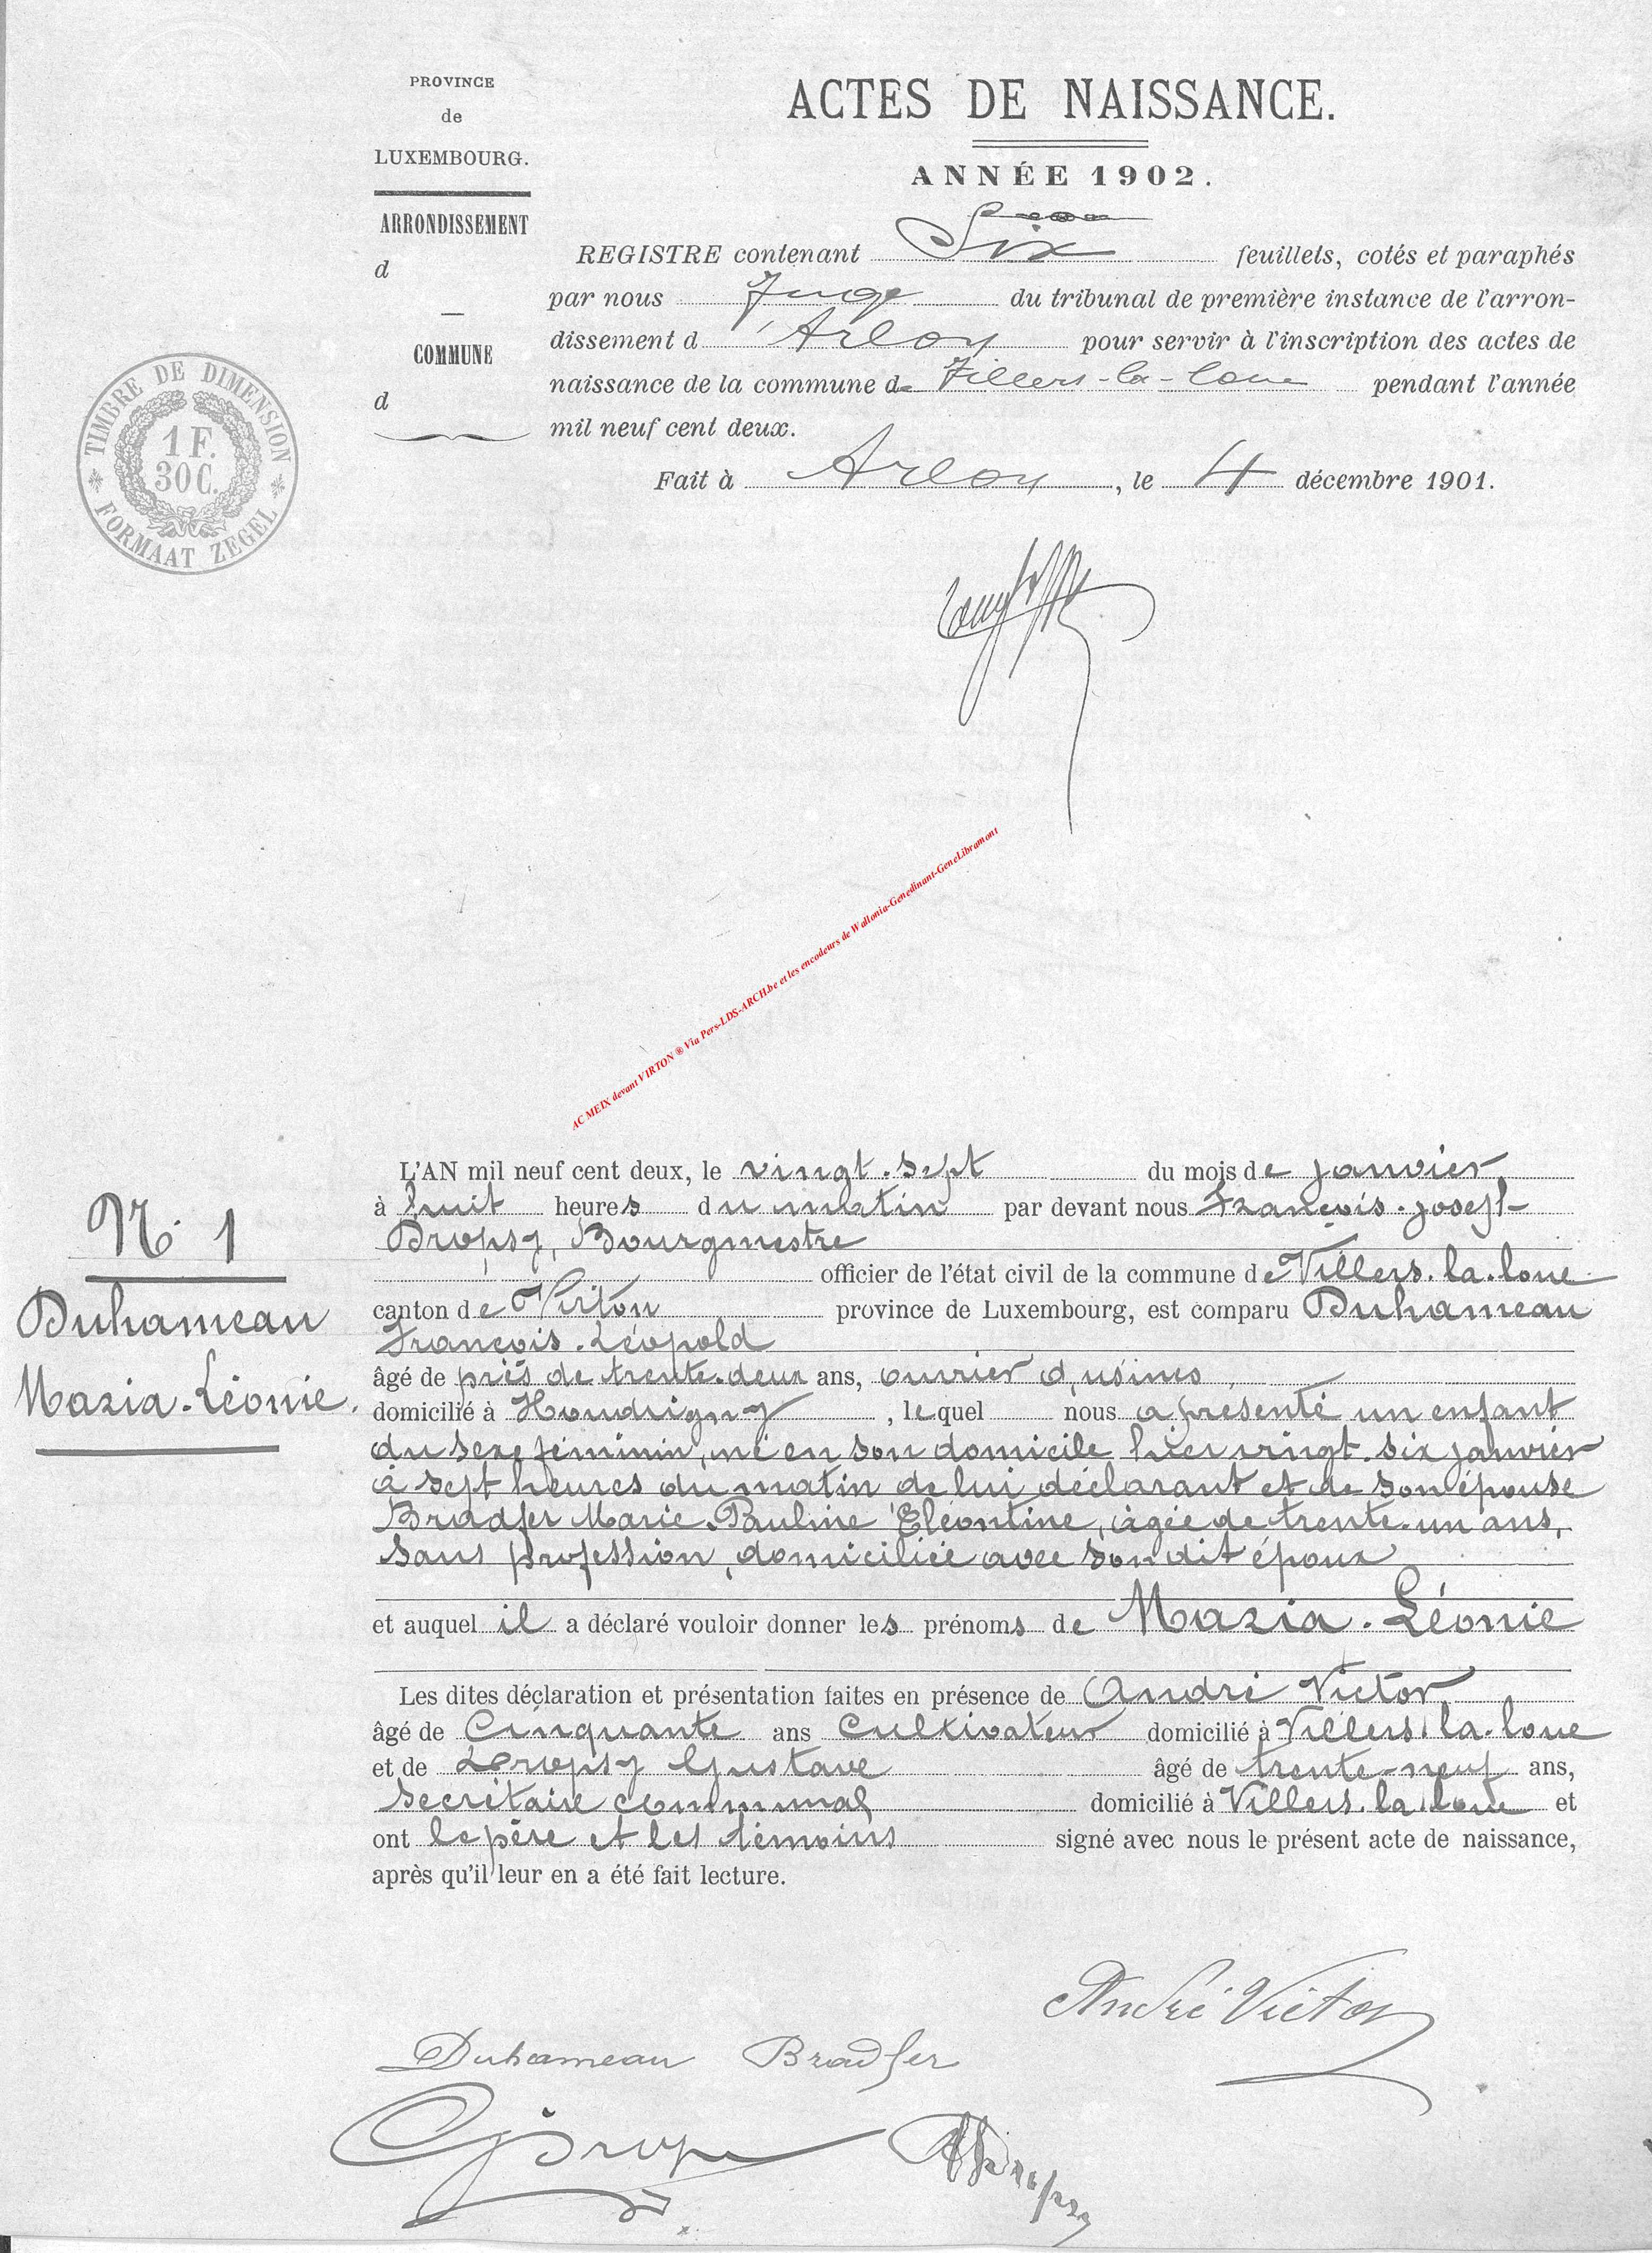 PROVINCE
de
LUXEMBOURG.
ARRONDISSEMENT
d
COMMUNE
d
TIMBRE DE DIMENSION
1 F.
30 C.
FORMAAT ZEGEL
ACTES DE NAISSANCE.
ANNÉE 1902.
REGISTRE contenant Six feuillets, cotés et paraphés
par nous Juge du tribunal de première instance de l'arron-
dissement d'Arlon pour servir à l'inscription des actes de
naissance de la commune de Villers-la-loue pendant l'année
mil neuf cent deux.
Fait à Arlon, le 4 décembre 1901.
AC MEIX devant VIRTON ® Via Pers-LDS-ARCH.be et les encodeurs de Wallonia-Genedinant-GeneLibramont
N. 1
Duhameau
Maria-Léonie.
L'AN mil neuf cent deux, le vingt-sept du mois de janvier
à huit heures du matin par devant nous François-joseph
Dropsy, Bourgmestre
officier de l'état civil de la commune de Villers-la-loue
canton de Virton province de Luxembourg, est comparu Duhameau
François-Léopold
âgé de près de trente-deux ans, ouvrier d'usines,
domicilié à Houdrigny, lequel nous a présenté un enfant
du sexe féminin, né en son domicile hier vingt-six janvier
à sept heures du matin de lui déclarant et de son épouse
Bradfer Marie-Pauline Eléontine, âgée de trente-un ans,
sans profession, domiciliée avec son dit époux
et auquel il a déclaré vouloir donner les prénoms de Maria-Léonie
Les dites déclaration et présentation faites en présence de André Victor
âgé de Cinquante ans Cultivateur domicilié à Villers-la-loue
et de Dropsy Gustave âgé de trente-neuf ans,
secrétaire communal domicilié à Villers-la-loue et
ont le père et les témoins signé avec nous le présent acte de naissance,
après qu'il leur en a été fait lecture.
André Victor
Duhameau Bradfer
G Dropsy
Dropsy